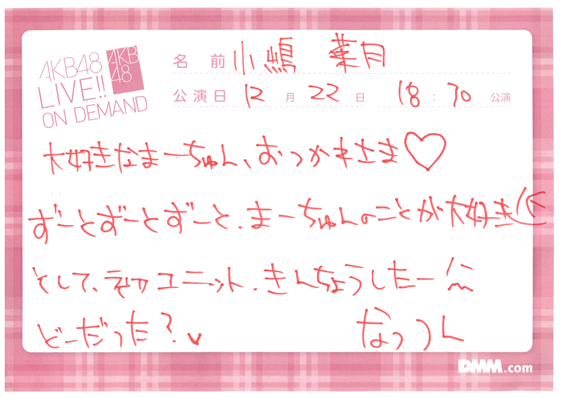 AKB48
LIVE!!
ON DEMAND
AKB
48
名前 小嶋 菜月
公演日 12月22日 18:30 公演
大好きなまーちゅん、おつかれさま♡
ずーとずーとずーと、まーちゅんのことが大好き
そして、初ユニット、きんちょうしたー
どーだった?
なっつん
DMM.com